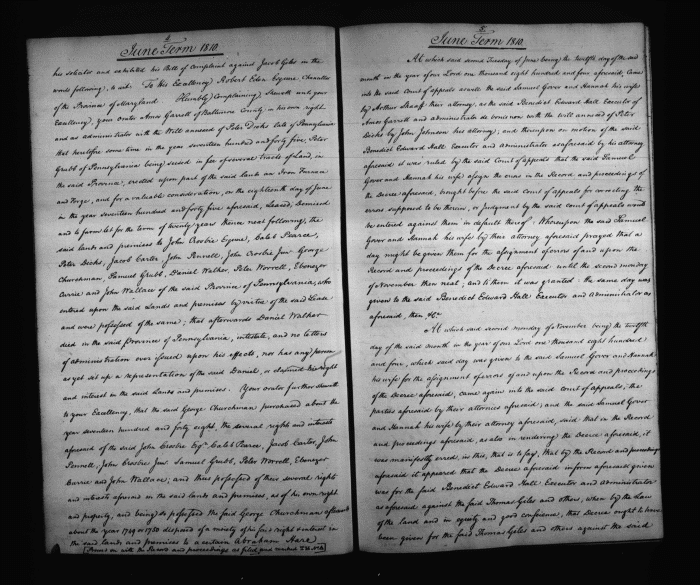 4
June Term 1810.
his solicitor and exhibited his Bill of Complaint against Jacob Giles in the
words following, to wit. To his Excellency Robert Eden Esquire Chancellor
of the Province of Maryland Humbly Complaining, Sheweth unto your
Excellency, your Orator Amos Garrett of Baltimore County in his own right
and as administrator with the Will annexed of Peter Dicks late of Pennsylvania
that heretofore some time in the year seventeen hundred and forty five, Peter
Grubb of Pennsylvania being seized in fee of several tracts of Land, in
the said Province, erected upon part of the said lands an Iron Furnace
and Forge, and for a valuable consideration, on the eighteenth day of June
in the year seventeen hundred and forty five aforesaid, Leased, Demised
and to farm let for the term of twenty years thence next following, the
said lands and premises to John Crosbie Esquire, Caleb Pearce,
Peter Dicks, Jacob Carter, John Pennell, John Crosbie Junr George
Churchman, Samuel Grubb, Daniel Walker, Peter Worrell, Ebenezer
Currie and John Wallace of the said Province of Pennsylvania, who
entered upon the said Lands and premises by virtue of the said Lease
and were possessed of the same; that afterwards Daniel Walker
died in the said Province of Pennsylvania, intestate, and no letters
of administration ever issued upon his effects, nor has any person
as yet set up a representation of the said Daniel, or claimed his right
and interest in the said Lands and premises. Your orator further sheweth
to your Excellency, that the said George Churchman purchased about the
year seventeen hundred and forty eight, the several rights and interests
aforesaid of the said John Crosbie Esqr, Caleb Pearce, Jacob Carter, John
Pennell, John Crosbie Junr Samuel Grubb, Peter Worrell, Ebenezer
Currie and John Wallace; and thus possessed of their several rights
and interests aforesaid in the said lands and premises, as of his own right
and property, and being so possessed the said George Churchman afterwards
about the year 1749 or 1750 disposed of a moiety of his said right & interest in
the said lands and premises to a certain Abraham Hare
5
June Term 1810.
At which said second Tuesday of June being the twelfth day of the said
month in the year of our Lord one thousand eight hundred and four aforesaid, Came
into the said Court of appeals as well the said Samuel Gover and Hannah his wife
by Arthur Shaaff their attorney, as the said Benedict Edward Hall Executor of
Amos Garrett and administrator de bonis non with the Will annexed of Peter
Dicks by John Johnson his attorney; and thereupon on motion of the said
Benedict Edward Hall Executor and administrator as aforesaid by his attorney
aforesaid it was ruled by the said Court of appeals that the said Samuel
Gover and Hannah his wife assign the errors in the Record and proceedings of
the Decree aforesaid, brought before the said Court of appeals for correcting the
errors supposed to be therein, or judgment by the said court of appeals would
be entered against them in default thereof. Whereupon the said Samuel
Gover and Hannah his wife by their attorney aforesaid prayed that a
day might be given them for the assignment of errors of and upon the
Record and proceedings of the Decree aforesaid until the second monday
of November then next; and to them it was granted: the same day was
given to the said Benedict Edward Hall Executor and Administrator as
aforesaid, then &c.
At which said second monday of November being the twelfth
day of the said month in the year of our Lord one thousand eight hundred
and four, which said day was given to the said Samuel Gover and Hannah
his wife for the assignment of errors of and upon the Record and proceedings
of the Decree aforesaid, came again into the said Court of appeals, the
parties aforesaid by their attornies aforesaid; and the said Samuel Gover
and Hannah his wife by their attorney aforesaid, said: that in the Record
and proceedings aforesaid, as also in rendering the Decree aforesaid, it
was manifestly erred, in this, that is to say, that by the Record and proceedings
aforesaid it appeared that the Decree aforesaid in form aforesaid given
was for the said Benedict Edward Hall Executor and administrator
as aforesaid against the said Thomas Giles and others, when by the Law
of the land and in equity and good conscience, that Decree ought to have
been given for the said Thomas Giles and others against the said